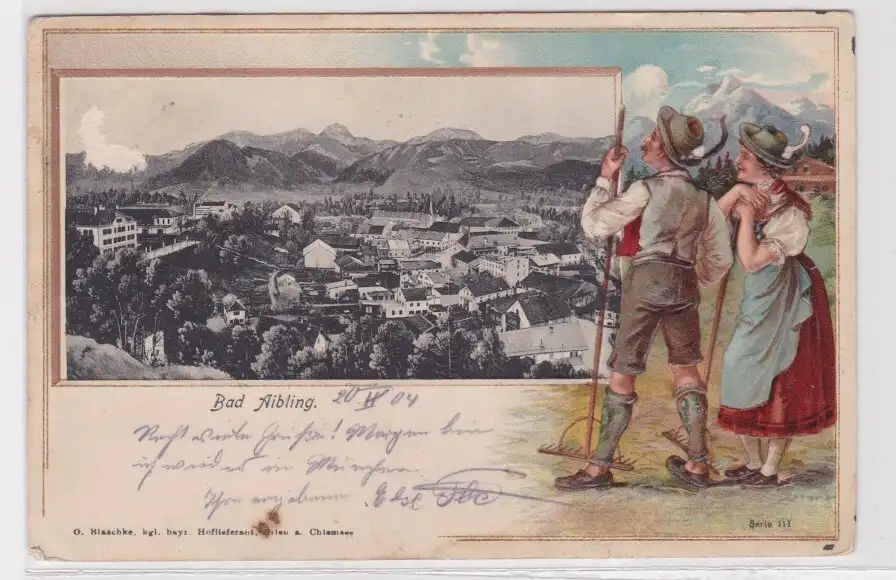 Bad Aibling. 20/IV 04
Recht viele Grüße! Morgen bin
ich wieder in München
Ihre ergebene Else
O. Blaschke, kgl. bayr. Hoflieferant, Prien a. Chiemsee
Serie III